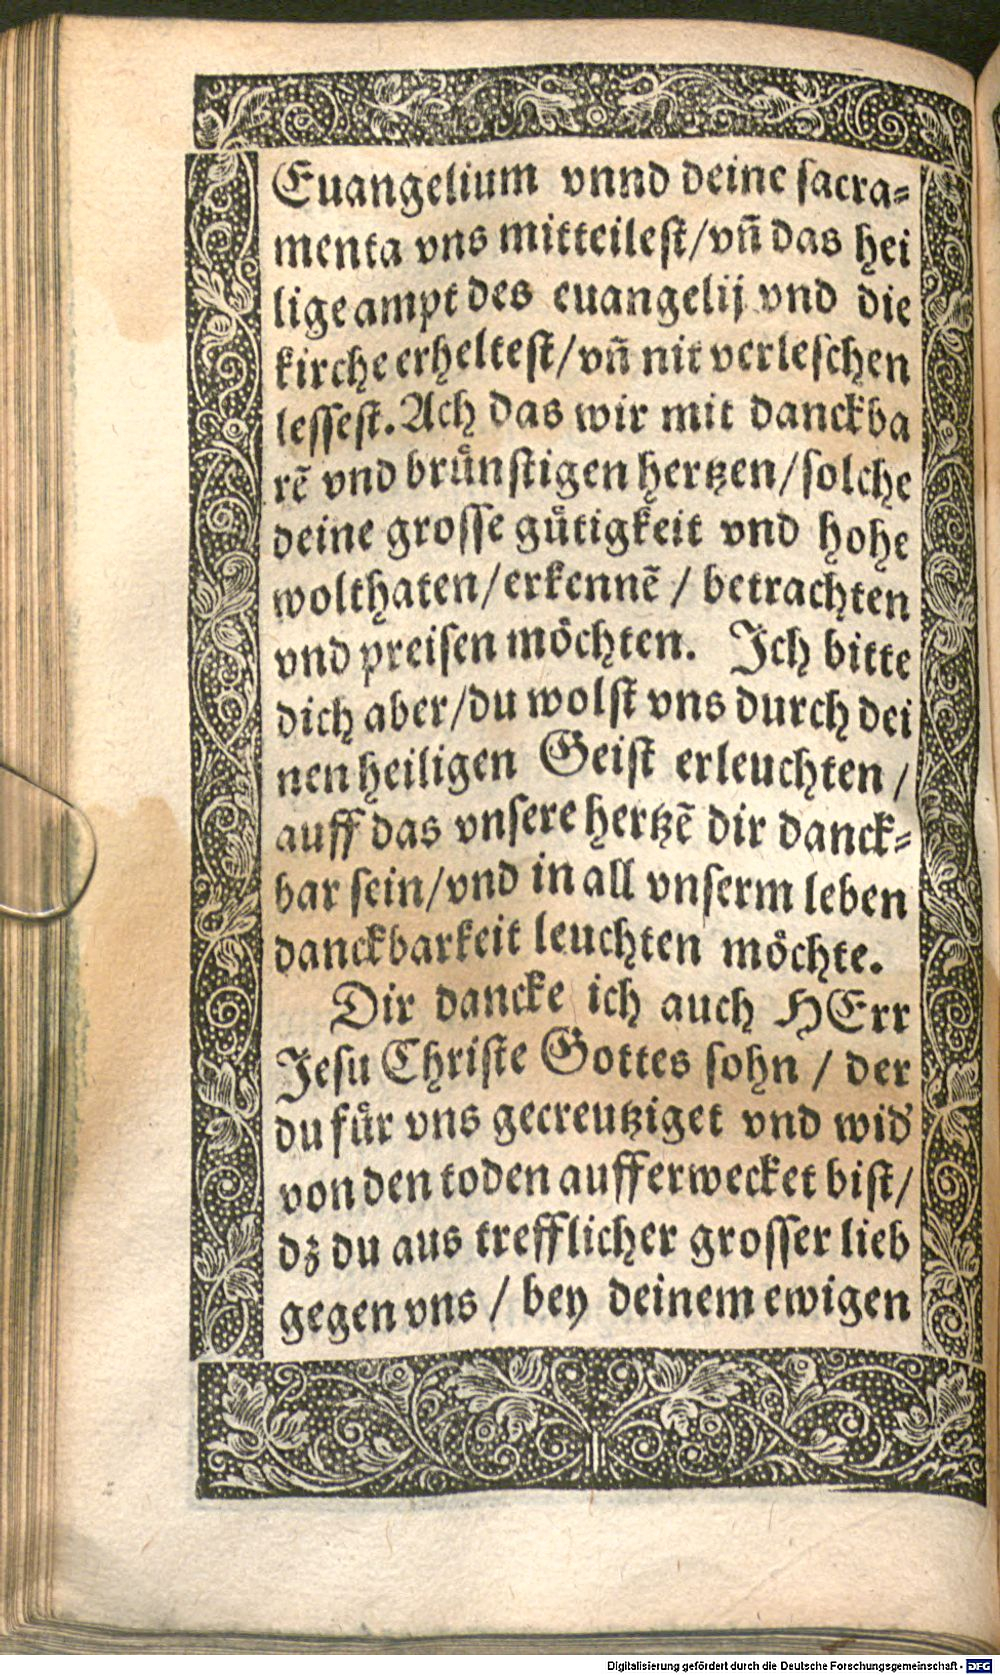 Euangelium vnnd deine sacra=
menta vns mitteilest/vn̄ das hei
lige ampt des euangelij vnd die
kirche erheltest/vn̄ nit verleschen
lessest. Ach das wir mit danckba
rē vnd brůnstigen hertzen/solche
deine grosse gůtigkeit vnd hohe
wolthaten/erkennē / betrachten
vnd preisen mőchten. Ich bitte
dich aber/du wolst vns durch dei
nen heiligen Geist erleuchten /
auff das vnsere hertzē dir danck=
bar sein/vnd in all vnserm leben
danckbarkeit leuchten mőchte.
Dir dancke ich auch HErr
Jesu Christe Gottes sohn / der
du fůr vns gecreutziget vnd wid'
von den toden aufferwecket bist/
dz du aus trefflicher grosser lieb
gegen vns / bey deinem ewigen
Digitalisierung gefördert durch die Deutsche Forschungsgemeinschaft - DFG